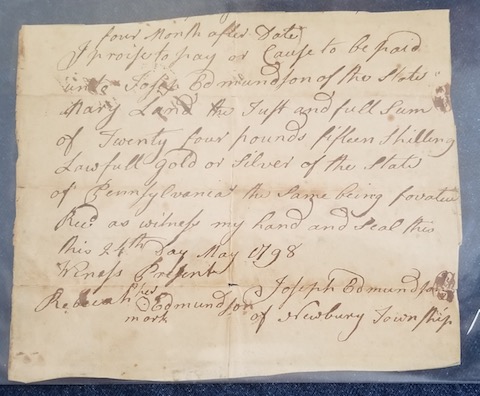 four Month after Date
I proise to pay or Cause to be paid
unto Josep Edmundson of the State
Mary Land the Just and full Sum
of Twenty four pounds fifteen Shilling
Lawfull Gold or Silver of the State
of Pennsylvania the same being for
Recd as witness my hand and Seal this
this 24th Day May 1798
Witness Present
Joseph Edmundson
Rebecah her Edmundson
mark
of Newbury Township